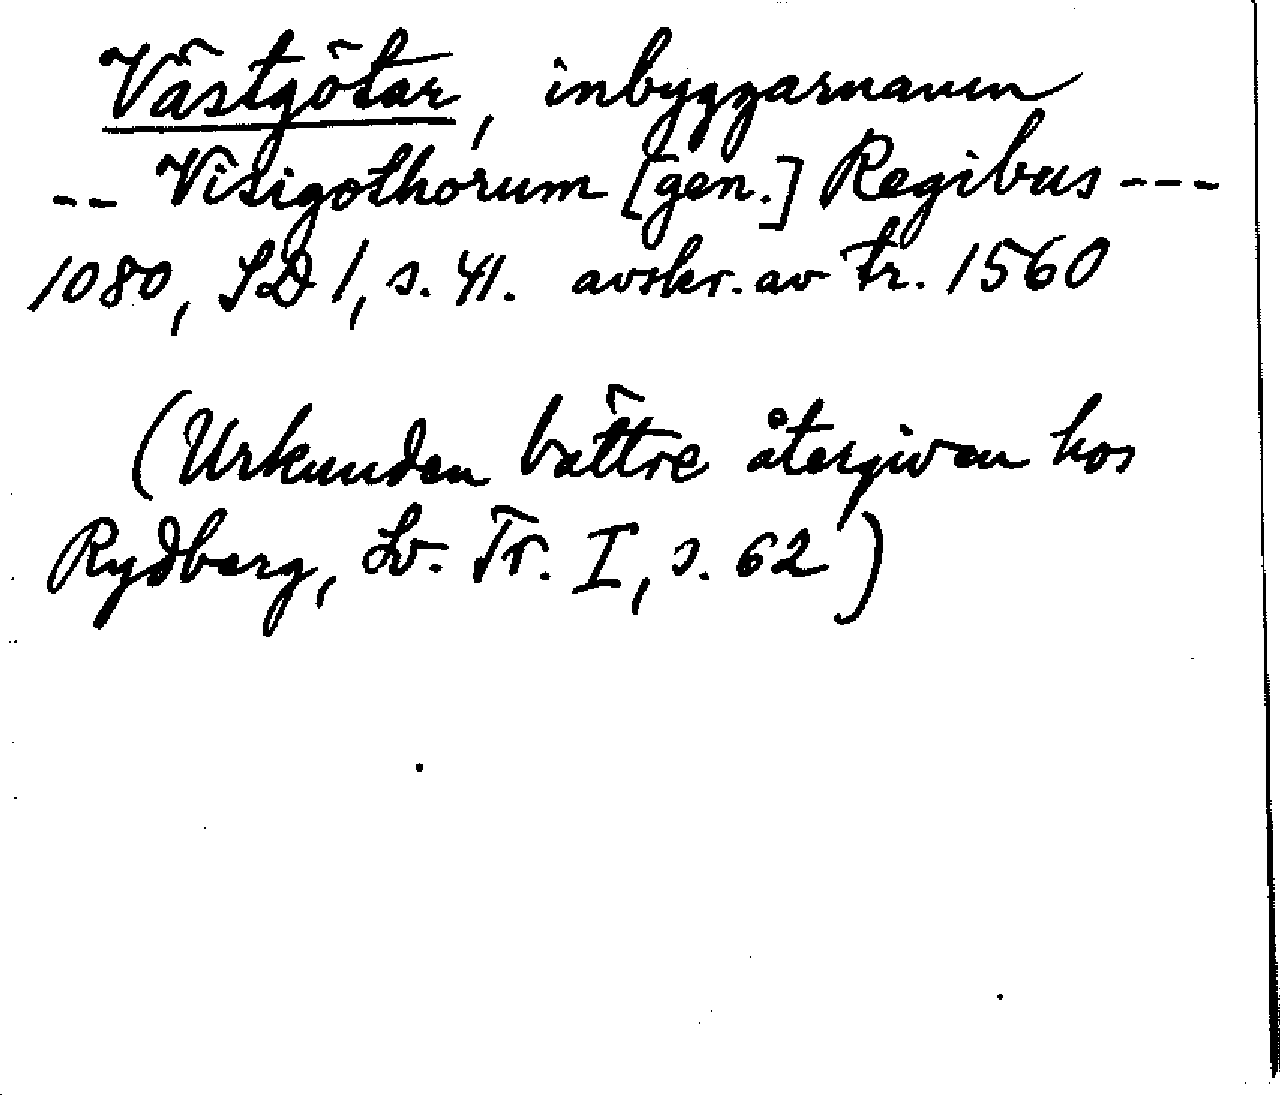 Västgötar, inbyggarnamn
-- Visigothorum [gen.] Regibus ---
1080, SD 1, s. 41. avskr. av tr. 1560
(Urkunden bättre återgiven hos
Rydberg, Sv. Tr. I, s. 62)